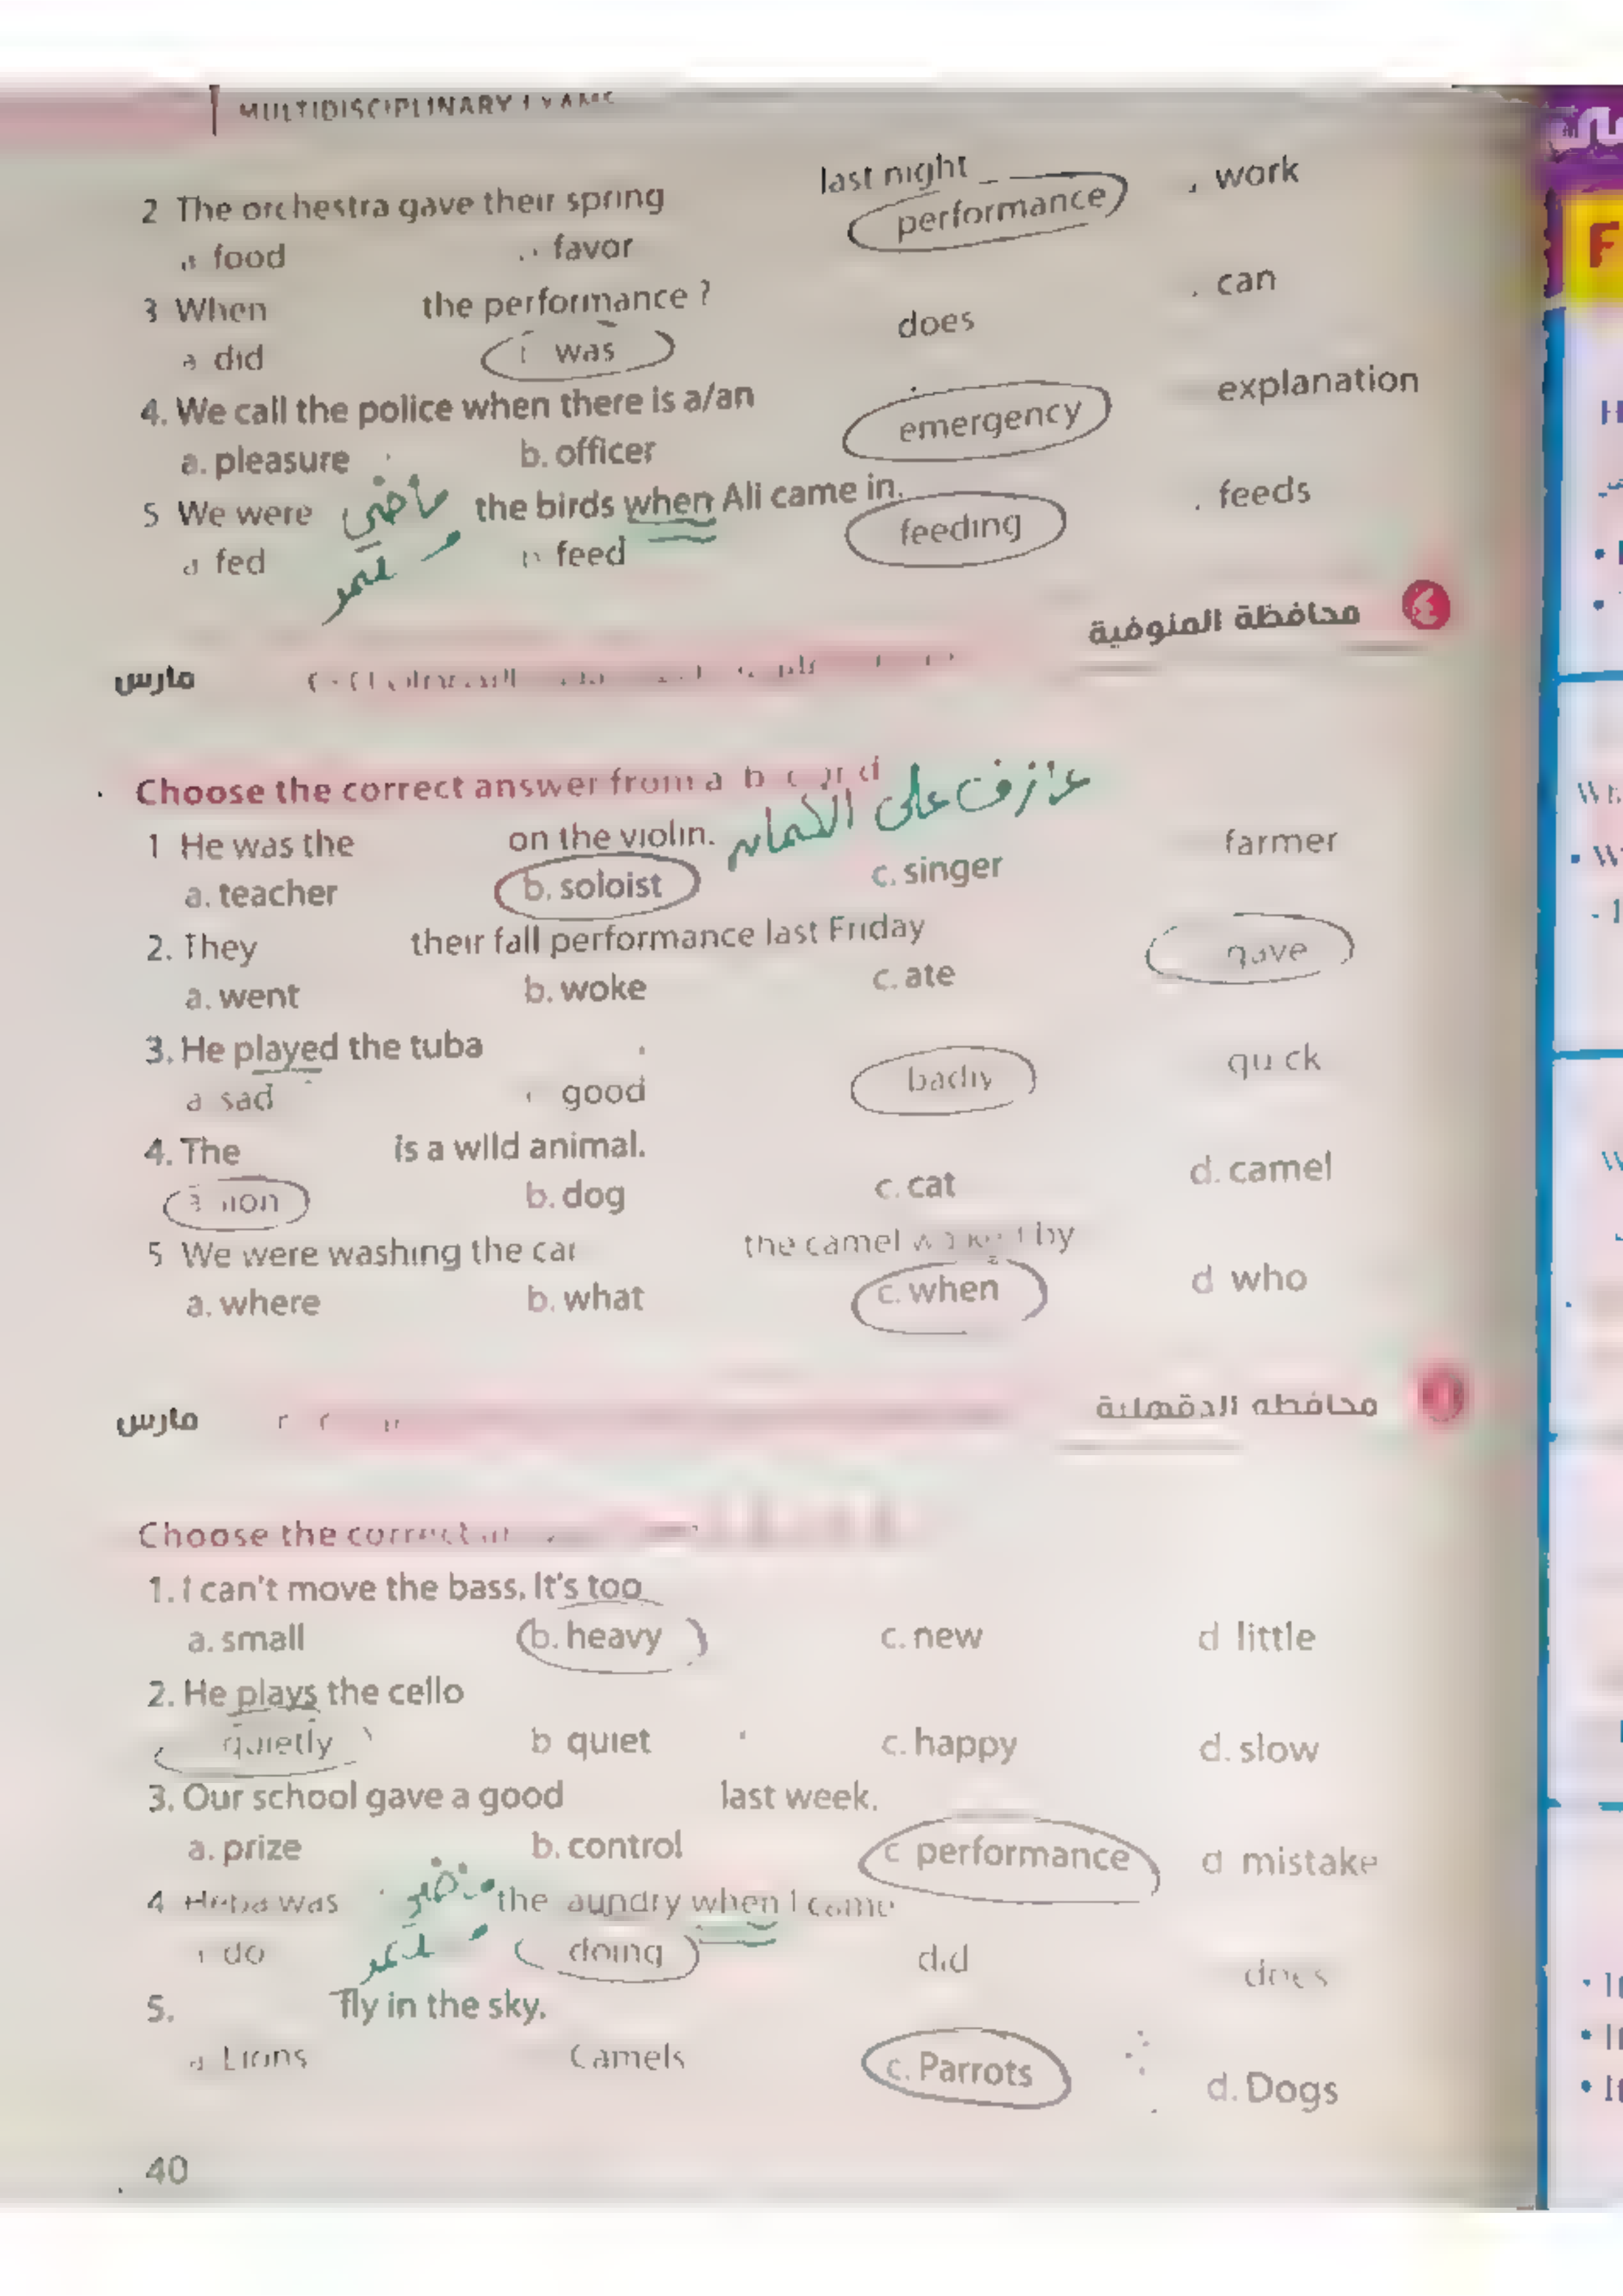 MULTIDISCIPLINARY EXAMS
2 The orchestra gave their spring last night
food favor performance work
3 When the performance ?
a did was does can
4. We call the police when there is a/an
a. pleasure b. officer emergency explanation
5 We were ماضي the birds when Ali came in.
مستمر
a fed b feed feeding feeds
محافظة المنوفية ٤
مارس
Choose the correct answer from a b c and d
عازف على الكمان
1 He was the on the violin.
a. teacher b. soloist c. singer farmer
2. They their fall performance last Friday
a. went b. woke c. ate gave
3. He played the tuba
a sad good badly quick
4. The is a wild animal.
a lion b. dog c. cat d. camel
5 We were washing the car the camel walked by
a. where b. what c. when d who
محافظة الدقهلية
مارس
Choose the correct
1. I can't move the bass. It's too
a. small b. heavy c. new d little
2. He plays the cello
quietly b quiet c. happy d. slow
3. Our school gave a good last week.
a. prize b. control c performance d mistake
4 Heba was ماضي the laundry when I came
مستمر
do doing did does
5. fly in the sky.
a Lions Camels c. Parrots d. Dogs
40